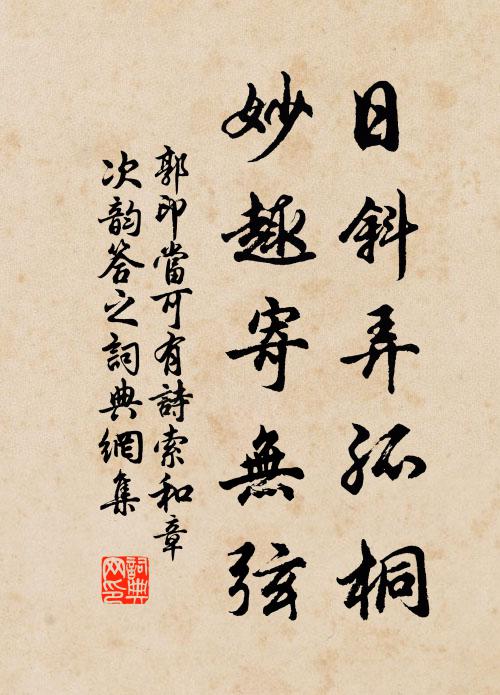 日斜弄孤桐
妙趣寄無弦
郭印當可有詩索和章
次韵答之詞典網集
詞典
网印